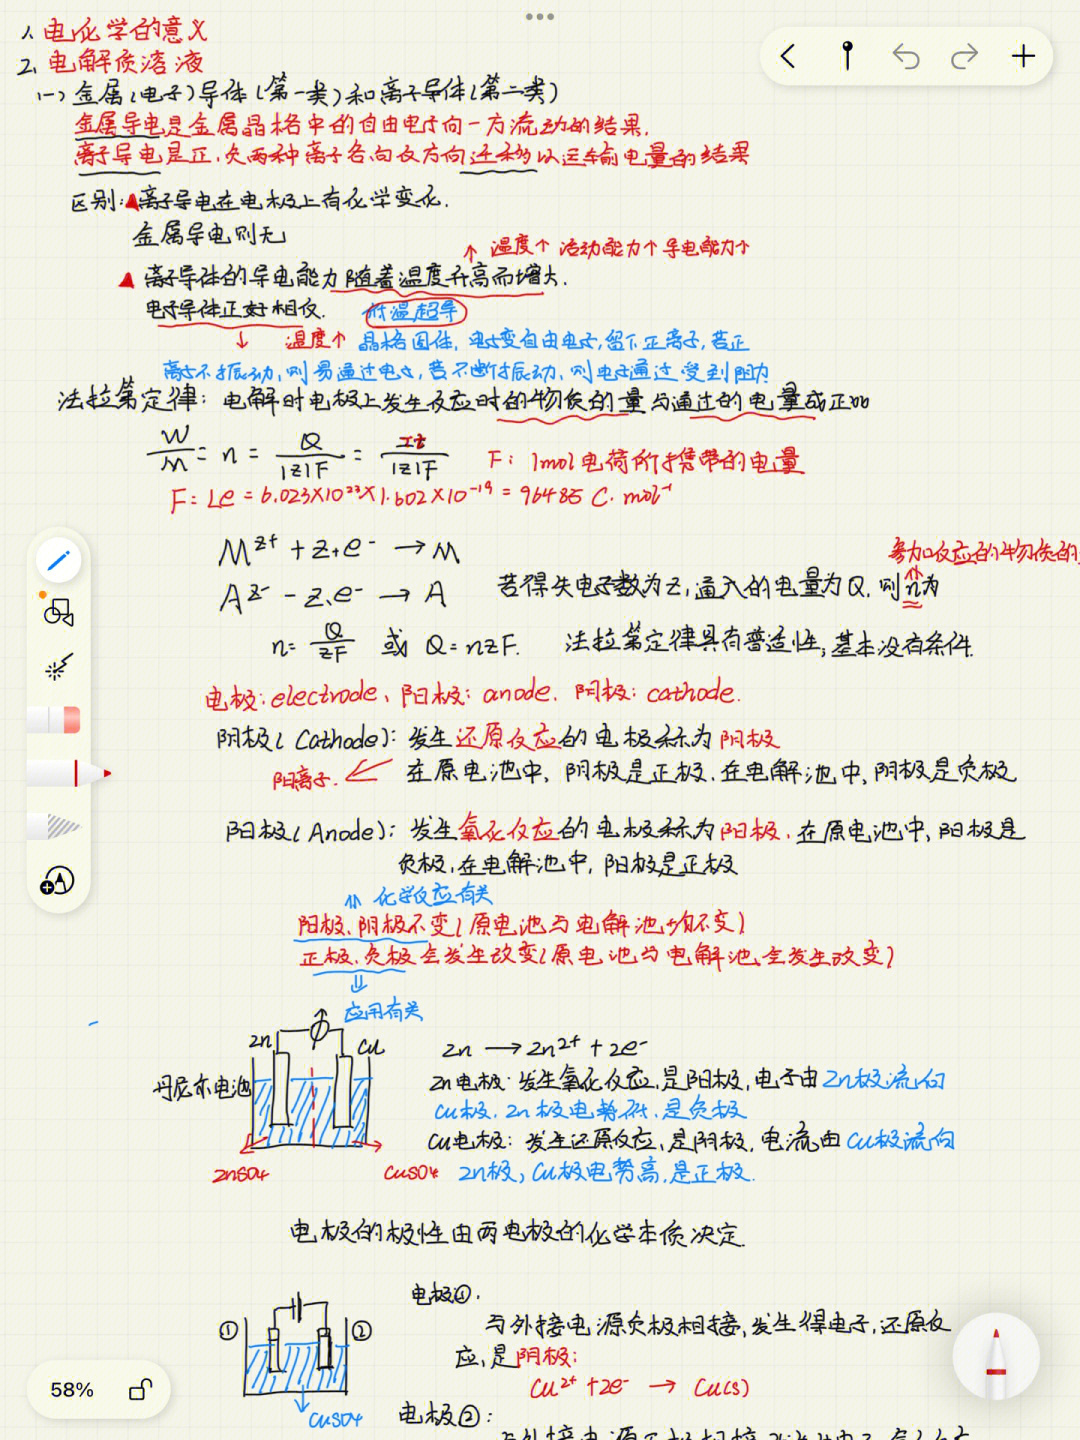 1. 电化学的意义
2. 电解质溶液
(一) 金属(电子)导体(第一类)和离子导体(第二类)
金属导电是金属晶格中的自由电子向一方流动的结果.
离子导电是正、负两种离子各向反方向迁移以运输电量的结果
区别: 离子导电在电极上有化学变化.
金属导电则无
↑ 温度↑ 活动能力↑ 导电能力↑
离子导体的导电能力随着温度升高而增大.
电子导体正好相反. 低温超导
↓ 温度↑ 晶格固体, 电子变自由电子, 留下正离子, 若正
离子不振动, 则易通过电子, 若不断付振动, 则电子通过受到阻力
法拉第定律: 电解时电极上发生反应时的物质的量与通过的电量成正比
W/M = n = Q/|z|F = It/|z|F F: 1mol电荷所携带的电量
F = Le = 6.023×10²³×1.602×10⁻¹⁹ = 96485 C·mol⁻¹
M^z+ + z+e⁻ → M
参加反应的物质的
A^z- - z-e⁻ → A 若得失电子数为z, 通入的电量为Q, 则n为
n = Q/zF 或 Q = nzF. 法拉第定律具有普适性, 基本没有条件.
电极: electrode、阳极: anode. 阴极: cathode.
阴极(Cathode): 发生还原反应的电极称为阴极
阳离子. 在原电池中, 阴极是正极. 在电解池中, 阴极是负极
阳极(Anode): 发生氧化反应的电极称为阳极. 在原电池中, 阳极是
负极. 在电解池中, 阳极是正极
⇑ 化学反应有关
阳极、阴极不变(原电池与电解池均不变)
正极、负极会发生改变(原电池与电解池会发生改变)
⇓
应用有关
Zn Cu
Zn → Zn²⁺ + 2e⁻
丹尼尔电池
Zn电极: 发生氧化反应, 是阳极, 电子由Zn极流向
Cu极. Zn极电势低. 是负极
Cu电极: 发生还原反应, 是阴极, 电流由Cu极流向
ZnSO4 CuSO4 Zn极, Cu极电势高, 是正极.
电极的极性由两电极的化学本质决定.
电极①.
① ② 与外接电源负极相接, 发生得电子, 还原反
应, 是阴极:
Cu²⁺ + 2e⁻ → Cu(s)
CuSO4
电极②:
58%